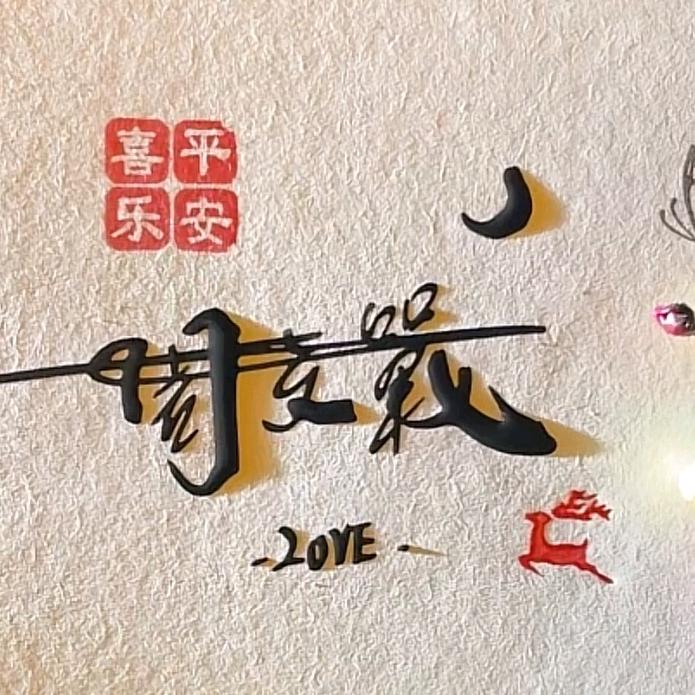 平安
喜乐
周 戰
LOVE